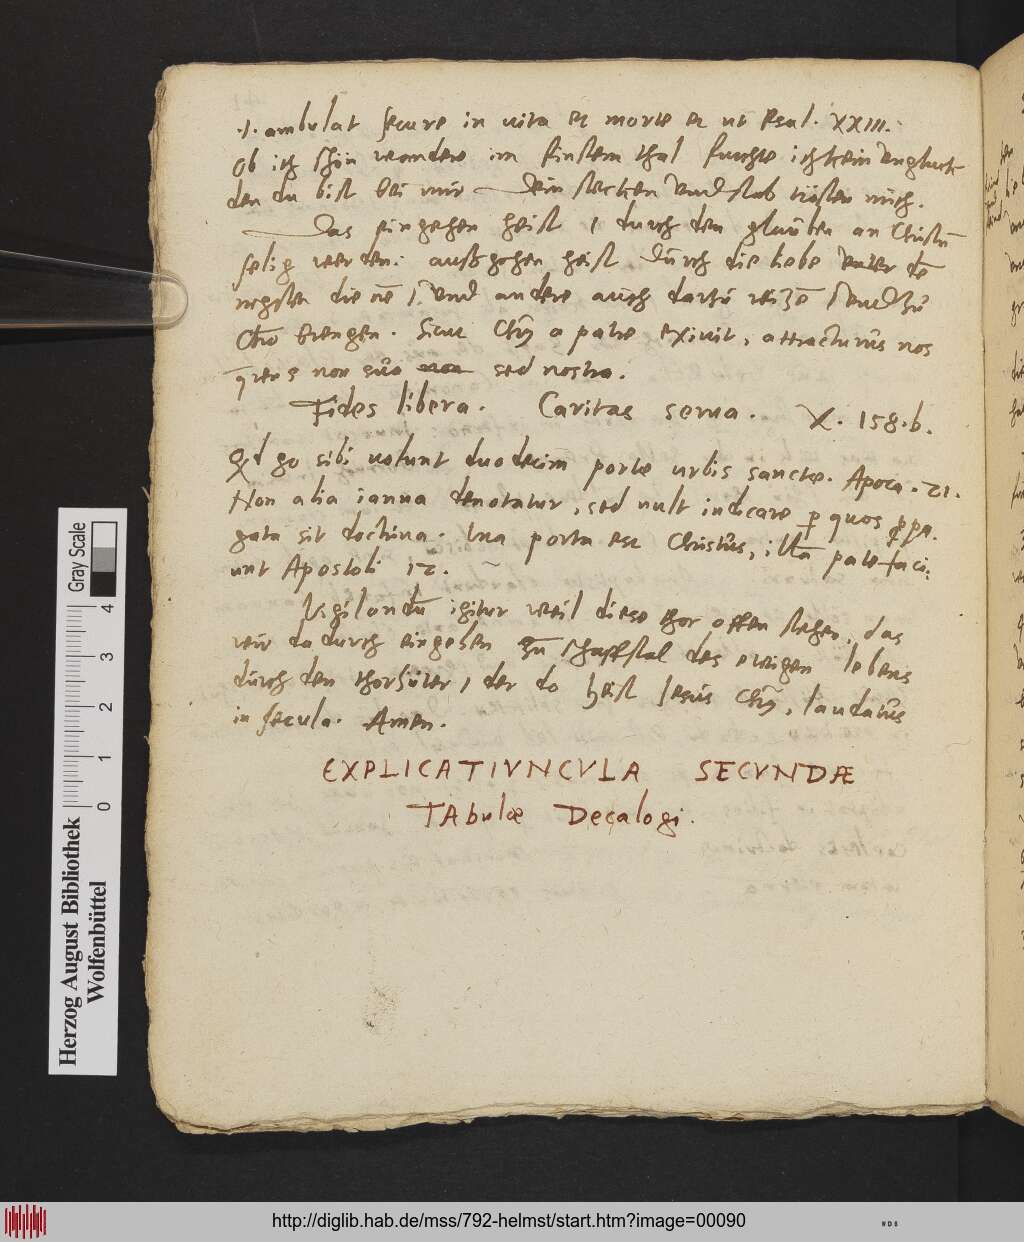 .i. ambulat secure in vita et morte et ut Psal. XXIII.
Ob ich schon wandere im finstern thal furchte ich kein ungluck
den du bist bei mir Dein stecken und stab trösten mich.
Das eingehen heist / durch den glauben an Christū
selig werden: außgehen heist durch die liebe unter dē
nehsten / und andere auch dartzu reitzē / und zu
Chō brengen. Sicut Chrs a patre exivit, attracturus nos
qrens non sua non sed nostra.
Fides libera. Caritas serva. X. 158.b.
Qd go sibi volunt duodecim portæ urbis sanctæ. Apoca. 21.
Non alia ianua denotatur, sed vult indicare p quos ppa-
gata sit doctrina. Una porta est Christus, illā patefaci-
unt Apostoli 12.
Vigilandū igitur weil diese thor offen stehen, das
wir dadurch eingehen zū schaffstal des ewigen lebens
durch den thorhüter / der do heist Jesus Chrs, laudatus
in secula. Amen.
EXPLICATIVNCVLA SECVNDÆ
TAbulæ Decalogi.
Herzog August Bibliothek
Wolfenbüttel
Gray Scale
0 1 2 3 4
http://diglib.hab.de/mss/792-helmst/start.htm?image=00090